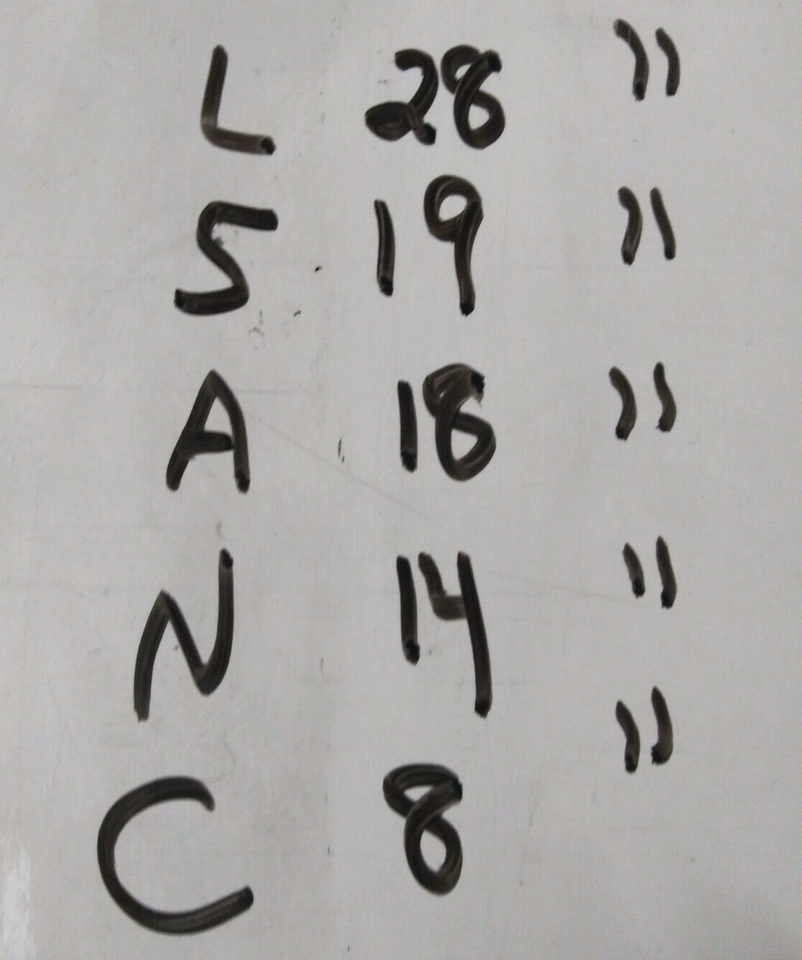 L 28 "
S 19 "
A 18 "
N 14 "
C 8 "